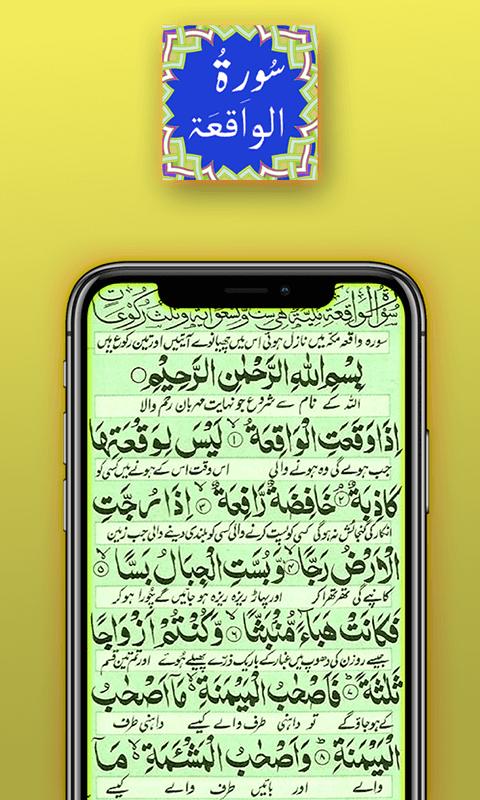 سُورۃُ
الواقعَۃ
سورہ واقعہ مکہ میں نازل ہوئی اس میں چھیانوے آیتیں اور تین رکوع ہیں
بِسْمِ اللهِ الرَّحْمٰنِ الرَّحِيْمِ
اللہ کے نام سے شروع جو نہایت مہربان رحم والا
اِذَا وَقَعَتِ الْوَاقِعَةُ ۙ۱ لَيْسَ لِوَقْعَتِهَا
جب ہولے گی وہ ہونے والی اس وقت اس کے ہونے میں کسی کو
كَاذِبَةٌ ۘ۲ خَافِضَةٌ رَّافِعَةٌ ۙ۳ اِذَا رُجَّتِ
انکار کی گنجائش نہ ہوگی کسی کو پست کرنے والی کسی کو بلندی دینے والی جب زمین
الْاَرْضُ رَجًّا ۙ۴ وَّبُسَّتِ الْجِبَالُ بَسًّا ۙ۵
کانپے گی تھرتھرا کر اور پہاڑ ریزہ ریزہ ہو جائیں گے چُورا ہو کر
فَكَانَتْ هَبَآءً مُّنْۢبَثًّا ۙ۶ وَّكُنْتُمْ اَزْوَاجًا
جیسے روزن کی دھوپ میں غبار کے باریک ذرّے پھیلے ہوئے اور تم تین قسم
ثَلٰثَةً ؕ۷ فَاَصْحٰبُ الْمَيْمَنَةِ ۙ مَاۤ اَصْحٰبُ
کے ہو جاؤ گے تو داہنی طرف والے کیسے داہنی طرف
الْمَيْمَنَةِ ؕ۸ وَاَصْحٰبُ الْمَشْـَٔمَةِ ۙ مَاۤ
والے اور بائیں طرف والے کیسے